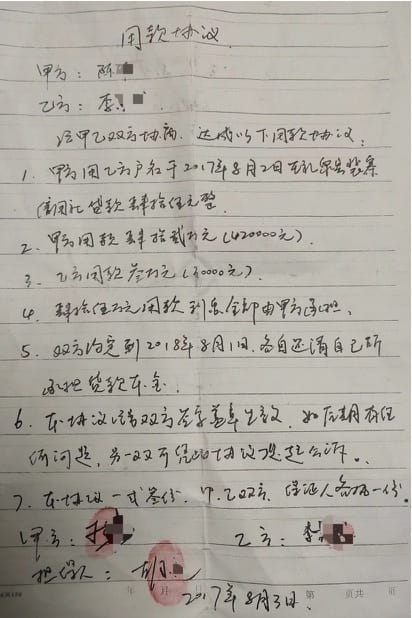 用款协议
甲方：陈
乙方：李
经甲乙双方协商，达成以下用款协议：
1. 甲方用乙方户名于2017年8月2日在礼泉县裴寨
信用社贷款肆拾伍元整
2. 甲方用款肆拾贰万元(420000元).
3. 乙方用款叁万元(30000元)
4. 肆拾伍万元用款利息全部由甲方承担.
5. 双方约定到2018年8月1日,各自还清自己所
承担贷款本金.
6. 本协议经双方签字盖章生效,如后期有任
何问题,另一双可凭此协议提起公诉.
7. 本协议一式叁份,甲乙双方、保证人各持一份.
甲方： 乙方：李
担保人：
年 月 日 第 页共 页
2017年8月3日.